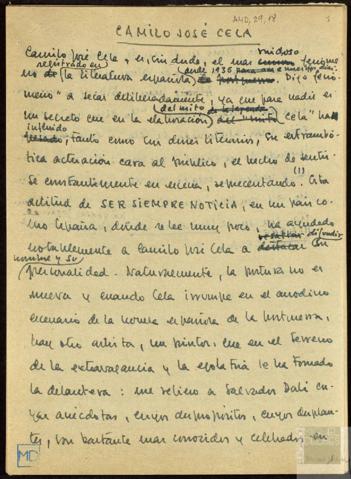 AMD, 29, 18
CAMILO JOSÉ CELA
Camilo José Cela, es, sin duda, el mas ruidoso fenóme
registrado en
no de la literatura española desde 1936 Digo fenó
meno a secas deliberadamente, ya que para nadie es
un secreto que en la elaboración del mito "Cela" han
influido
tanto como sus dones literarios, su extrambó
tica actuación cara al público, el hecho de sentir
se constantemente en escena, representando. (1) Esta
actitud de SER SIEMPRE NOTICIA, en un país co
mo España, donde se lee muy poco, ha ayudado
notablemente a Camilo José Cela a difundir
nombre y su
personalidad. Naturalmente, la postura no es
nueva y cuando Cela irrumpe en el anodino
escenario de la novela española de la postguerra,
hay otro artista, un pintor, que en el terreno
de la extravagancia y la egolatría le ha tomado
la delantera: me refiero a Salvador Dalí cu-
yas anécdotas, cuyos despropósitos, cuyos desplan-
tes, son bastante mas conocidos y celebrados en
MD